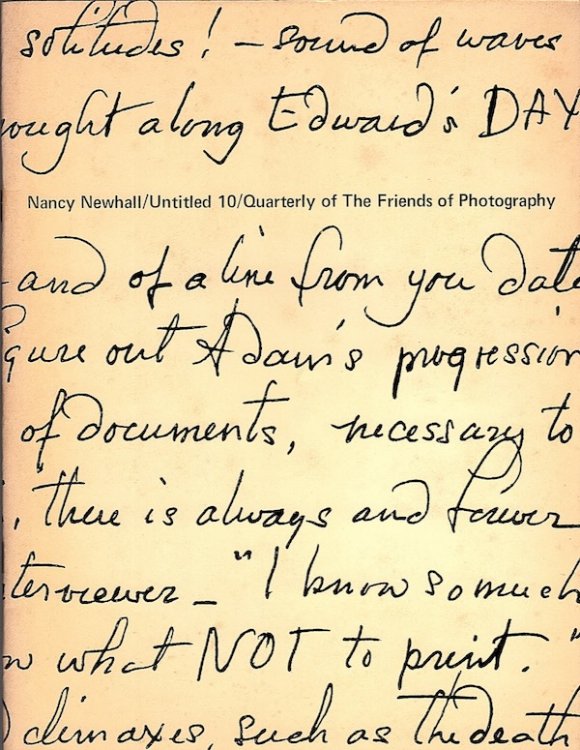 solitudes! – sound of waves
ought along Edward's DAY
Nancy Newhall/Untitled 10/Quarterly of The Friends of Photography
-and of a line from you date
gure out Adam's progression
of documents, necessary to
, there is always and forever
terviewer – "I know so much
w what NOT to print."
climaxes, such as The death